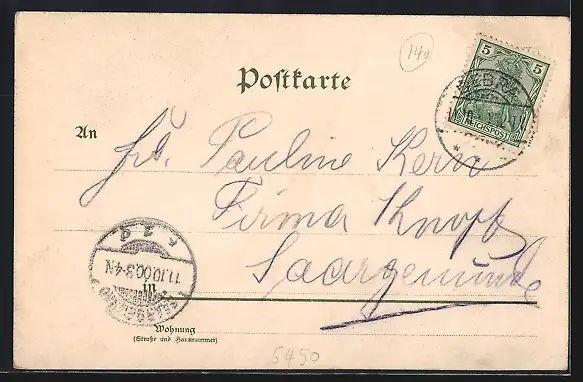 140
Postkarte
5 5
REICHSPOST
An
Frl. Pauline Kern
Firma Knopf
Saargemünd
11.10.00.3-4N.
Wohnung
(Straße und Hausnummer)
6450